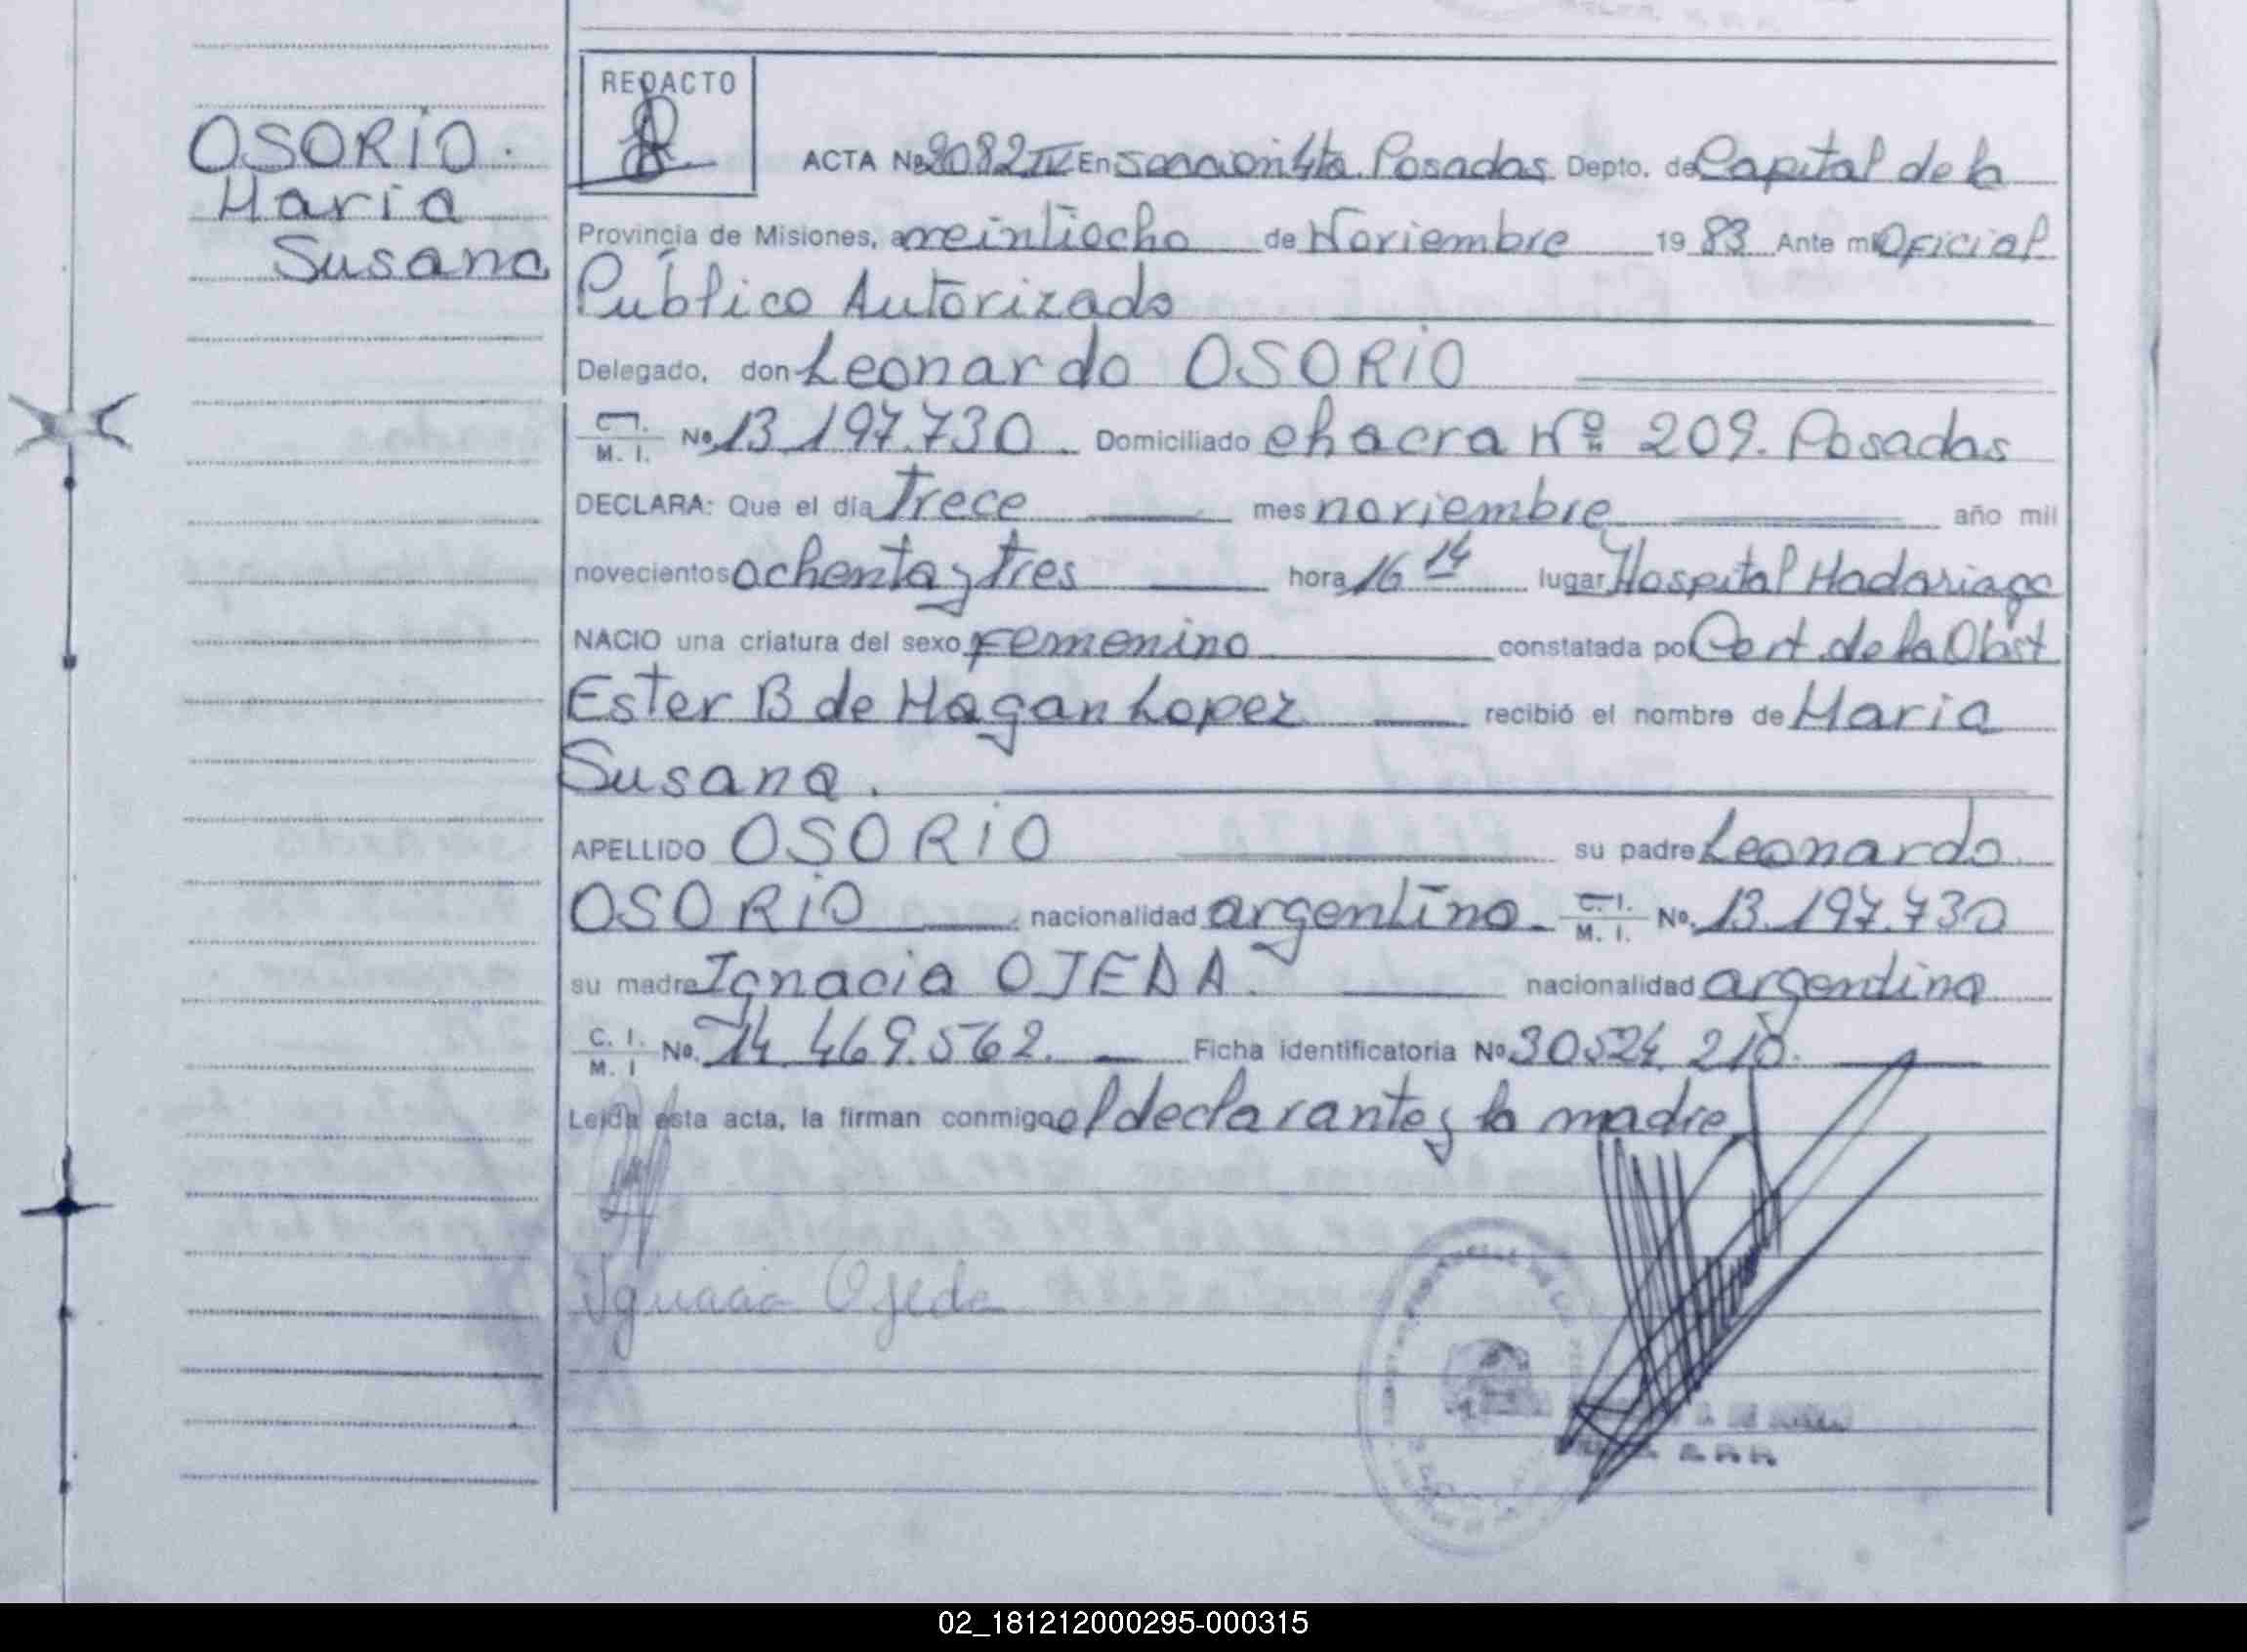 REDACTO
OSORIO.
Maria
Susana
ACTA No. 2082 IV En sección 4ta. Posadas Depto. de Capital de la
Provincia de Misiones, a veintiocho de Noviembre 1983 Ante mi Oficial
Público Autorizado
Delegado, don Leonardo OSORIO
C.I. M. I. No. 13.197.730. Domiciliado chacra Nº 209. Posadas
DECLARA: Que el día trece mes noviembre año mil
novecientos ochenta y tres hora 16 14 lugar Hospital Madariaga
NACIO una criatura del sexo Femenino constatada po Cert. de la Obst
Ester B de Magan Lopez recibió el nombre de Maria
Susana.
APELLIDO OSORIO su padre Leonardo
OSORIO nacionalidad argentino. C.I. M. I. No. 13.197.730
su madre Ignacia OJEDA. nacionalidad argentina
C. I. M. I No. 14.469.562. Ficha identificatoria No 30524.210.
Leída esta acta, la firman conmigo el declarante y la madre
Ignacia Ojeda
02_181212000295-000315